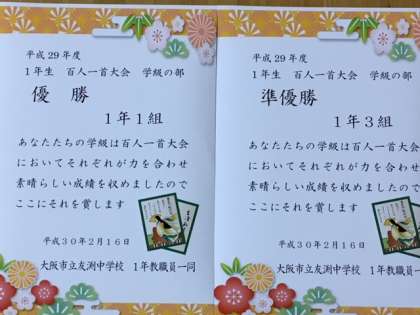 平成29年度
1年生 百人一首大会 学級の部
優 勝
1年1組
あなたたちの学級は百人一首大会
においてそれぞれが力を合わせ
素晴らしい成績を収めましたので
ここにそれを賞します
平成30年2月16日
大阪市立友渕中学校 1年教職員一同
平成29年度
1年生 百人一首大会 学級の部
準優勝
1年3組
あなたたちの学級は百人一首大会
においてそれぞれが力を合わせ
素晴らしい成績を収めましたので
ここにそれを賞します
平成30年2月16日
大阪市立友渕中学校 1年教職員一同